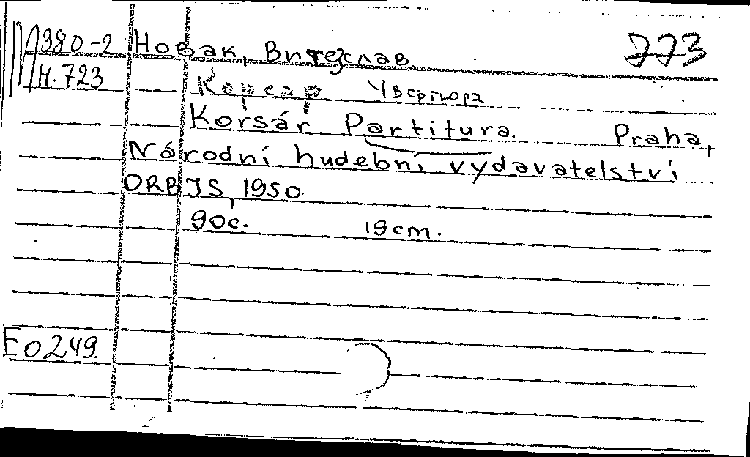 А380-2 Новак, Витезслав 773
Н.723 Корсар Увертюра
Korsár Partitura. Praha,
Národní hudební vydavatelství
ORBIS, 1950
90с. 19cm.
Ео249